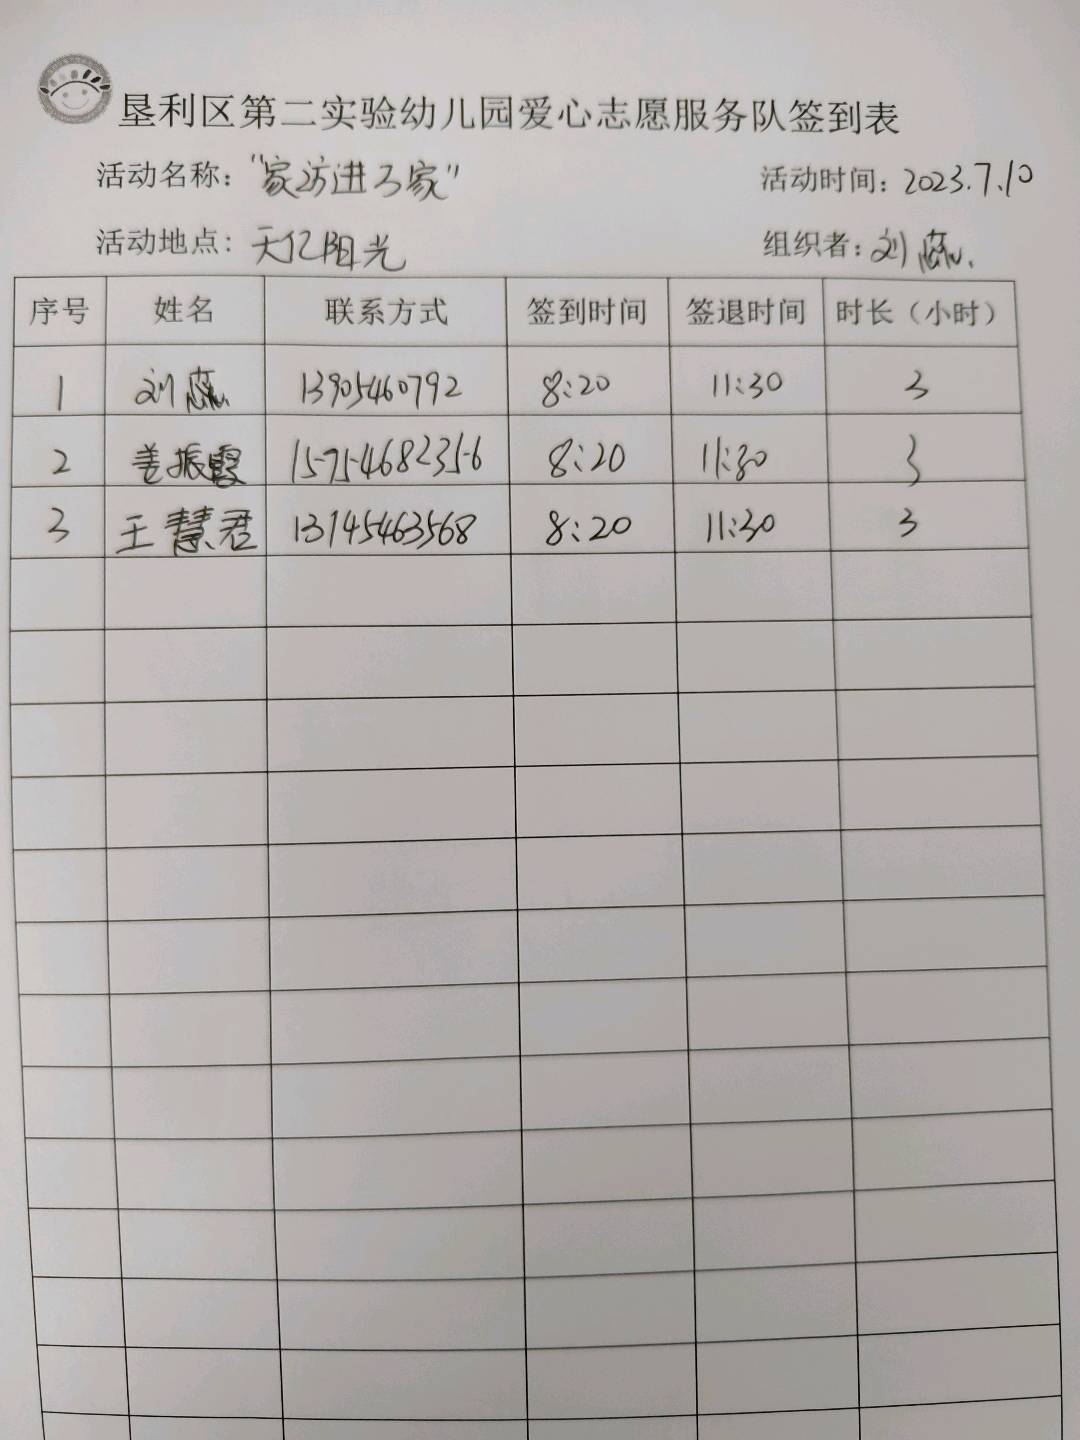 垦利区第二实验幼儿园爱心志愿服务队签到表
活动名称："家访进万家" 活动时间：2023.7.10
活动地点：天亿阳光 组织者：刘蕊
序号 姓名 联系方式 签到时间 签退时间 时长（小时）
1 刘蕊 13905460792 8:20 11:30 3
2 姜振霞 15754682356 8:20 11:30 3
3 王慧君 13145463568 8:20 11:30 3